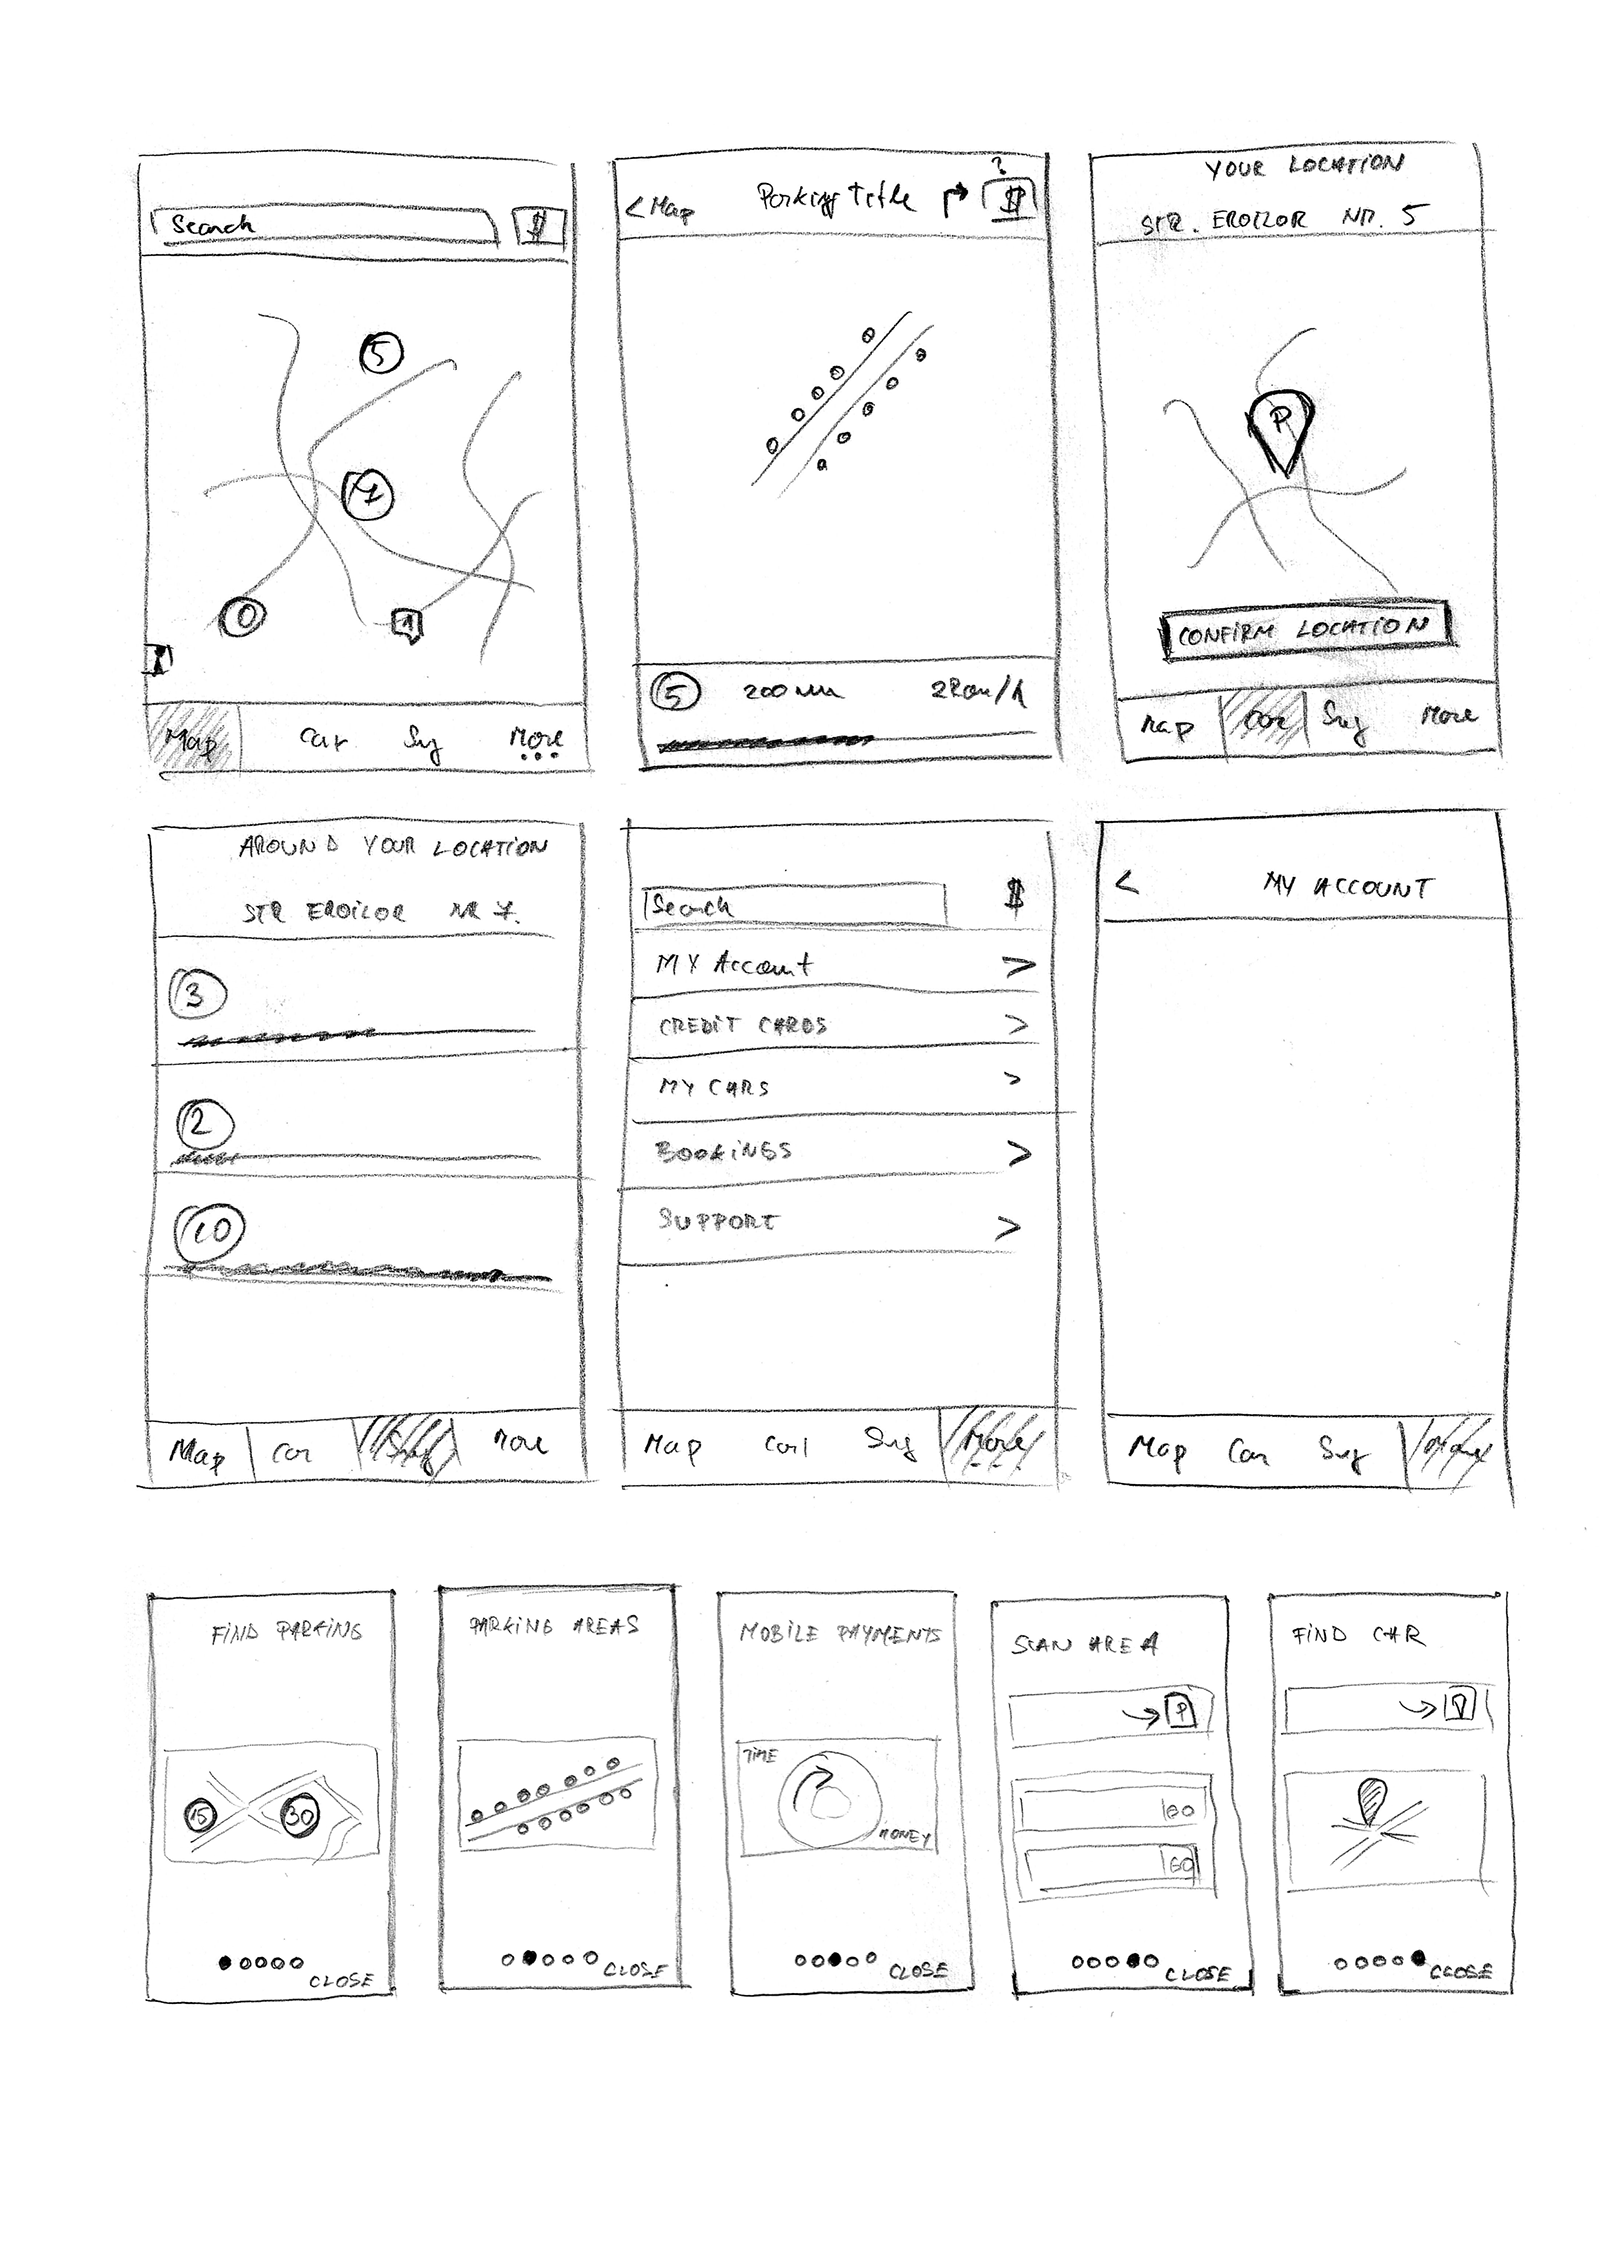 Search $
5
7
0
1
Map Car Sug More
?
< Map Parking Title $
5 200 m 2 Ron/h
YOUR LOCATION
STR. EROILOR NR. 5
P
CONFIRM LOCATION
Map Car Sug More
AROUND YOUR LOCATION
STR EROILOR NR 7.
3
2
10
Map Car Sug More
Search $
MY Account >
CREDIT CARDS >
MY CARS >
BOOKINGS >
SUPPORT >
Map Car Sug More
< MY ACCOUNT
Map Car Sug More
FIND PARKING
15 30
CLOSE
PARKING AREAS
CLOSE
MOBILE PAYMENTS
TIME
MONEY
CLOSE
SCAN AREA
P
GO
GO
CLOSE
FIND CAR
CLOSE